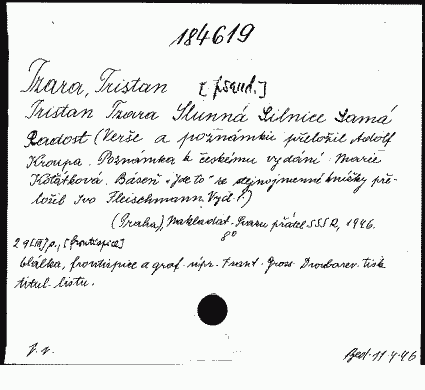 184619
Tzara, Tristan [pseud.]
Tristan Tzara Slunná Silnice Samá
Radost (Verše a poznámku přeložil Adolf
Kroupa. Poznámka k českému vydání: Marie
Koťátková. Báseň „Jde to" ze stejnojmenné knížky pře-
ložil Ivo Fleischmann. Vyd. 1.)
(Praha), Nakladat. Svazu přátel SSSR, 1946.
8°
[frontispice]
Obálka, frontispice a graf. úpr. Frant. Gross. Dvoubarev. tisk
titul. listu.
Bed. 11.4.46